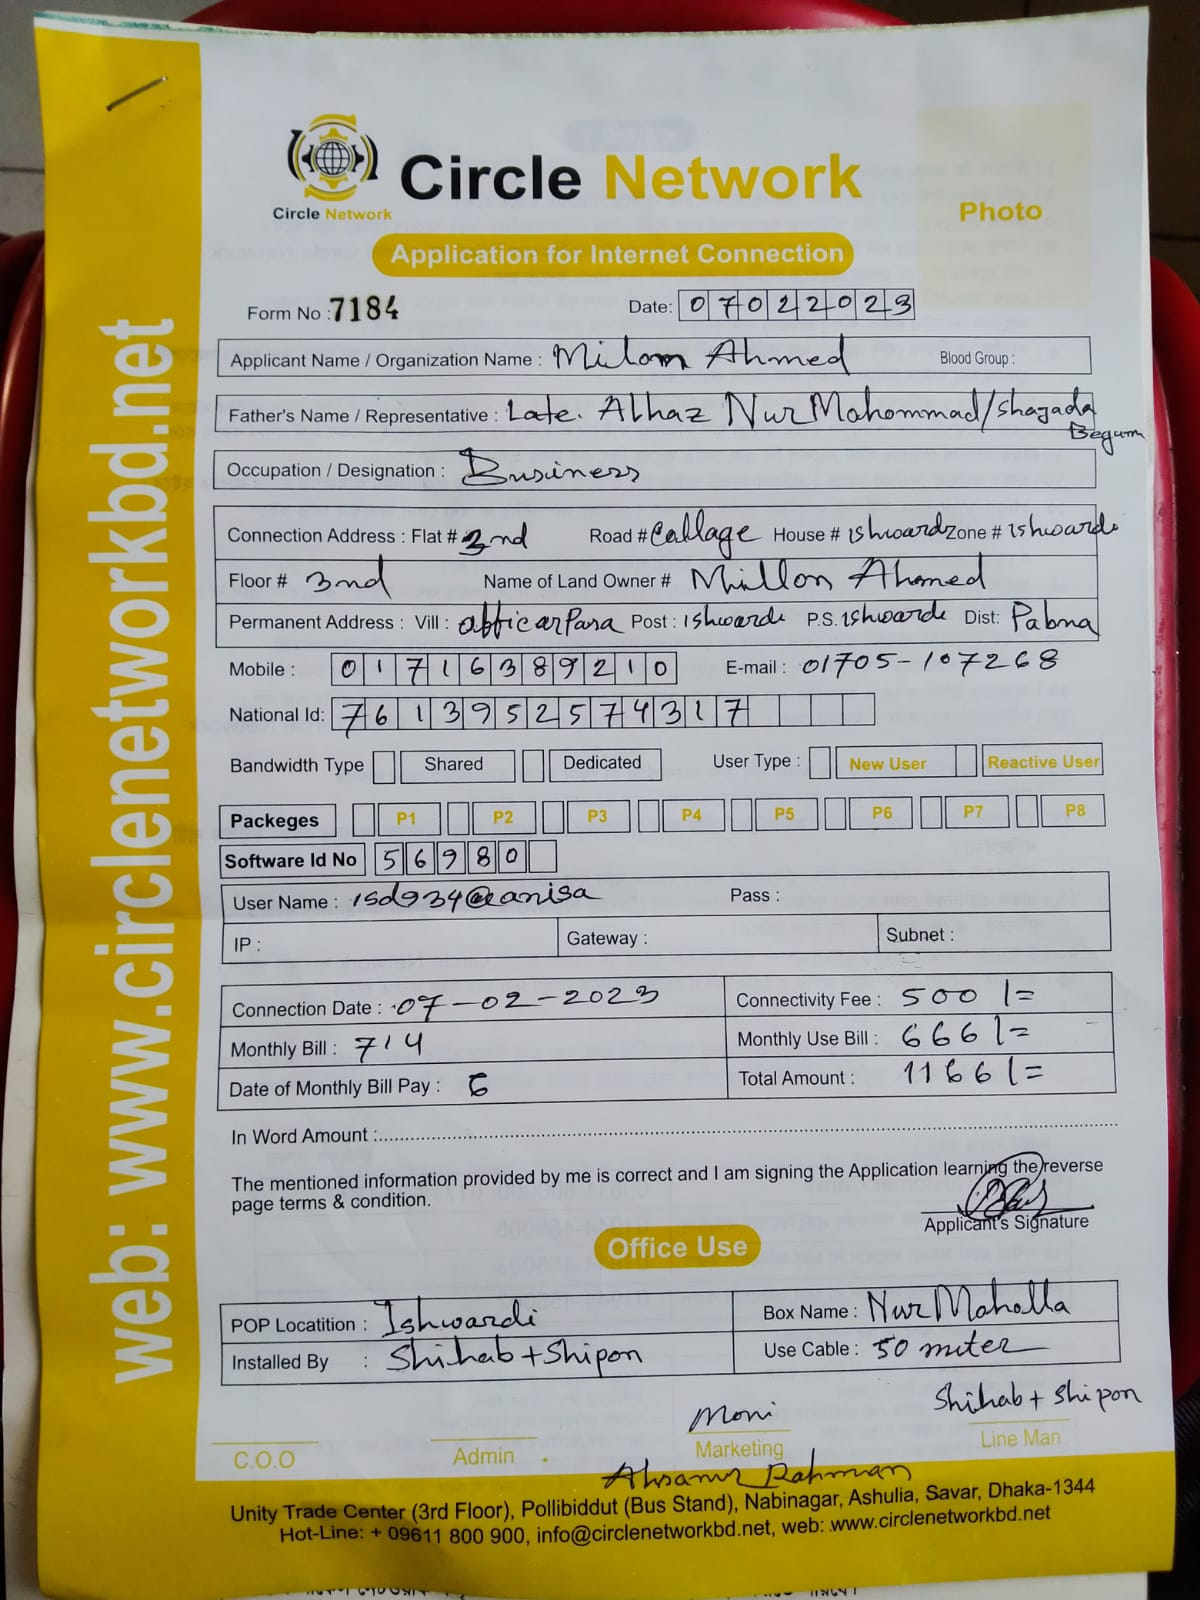 web: www.circlenetworkbd.net
Circle Network
Circle Network
Photo
Application for Internet Connection
Form No : 7184 Date: 07022023
Applicant Name / Organization Name : Milom Ahmed Blood Group :
Father's Name / Representative : Late. Alhaz Nur Mohommad/Shazada
Begum
Occupation / Designation : Business
Connection Address : Flat # 2nd Road # Callage House # ishwardi Zone # ishwardi
Floor # 3nd Name of Land Owner # Millon Ahmed
Permanent Address : Vill : afficarPara Post : ishwardi P.S. ishwardi Dist: Pabna
Mobile : 01716389210 E-mail : 01705-107268
National Id: 7613952574317
Bandwidth Type Shared Dedicated User Type : New User Reactive User
Packeges P1 P2 P3 P4 P5 P6 P7 P8
Software Id No 56980
User Name : isd934@anisa Pass :
IP : Gateway : Subnet :
Connection Date : 07-02-2023 Connectivity Fee : 500 /=
Monthly Bill : 714 Monthly Use Bill : 666 /=
Date of Monthly Bill Pay : 6 Total Amount : 1166 /=
In Word Amount :
The mentioned information provided by me is correct and I am signing the Application learning the reverse
page terms & condition.
Applicant's Signature
Office Use
POP Locatition : Ishwardi Box Name : Nur Maholla
Installed By : Shihab + Shipon Use Cable : 50 miter
Moni Shihab + Shipon
C.O.O Admin Marketing Line Man
Ahsanur Rahman
Unity Trade Center (3rd Floor), Pollibiddut (Bus Stand), Nabinagar, Ashulia, Savar, Dhaka-1344
Hot-Line: + 09611 800 900, info@circlenetworkbd.net, web: www.circlenetworkbd.net